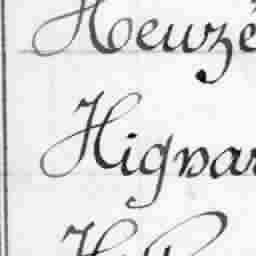 Heuzé
Hignar